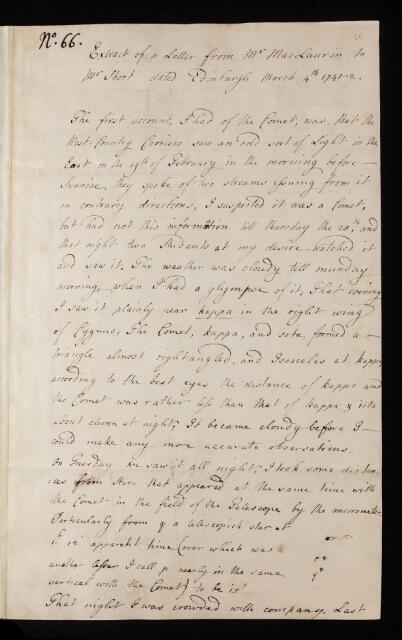 No. 66.
Extract of a Letter from Mr. MacLaurin to
Mr. Short dated Edinburgh March 4th 1741-2.
The first account, I had of the Comet, was, that the
West-Country Carriers saw an odd sort of Light in the
East on the 19th of February in the morning before
Sunrise, they spoke of two streams issuing from it
in contrary directions, I suspected it was a Comet,
but had not this information till thursday the and
that night two Students at my desire watched it
and saw it, The weather was cloudy till munday
morning, when I had a glympse of it, That evening
I saw it plainly near kappa in the right wing
of Cygnus; The Comet, kappa, and iota, formed a
triangle almost rightangled, and Isosceles at kappa,
according to the best eyes the distance of kappa and
the Comet was rather less than that of kappa & iota
about eleven at night; It became cloudy before I
could make any more accurate observations.
On Tuesday we saw it all night, I took some distan
ces from stars that appeared at the same time with
the Comet in the field of the Telescope by the micrometer,
Particularly from q a telescopick star at
apparent time (over which was
another lesser I call p nearly in the same
vertical with the Comet) to be
That night I was crowded with company, Last